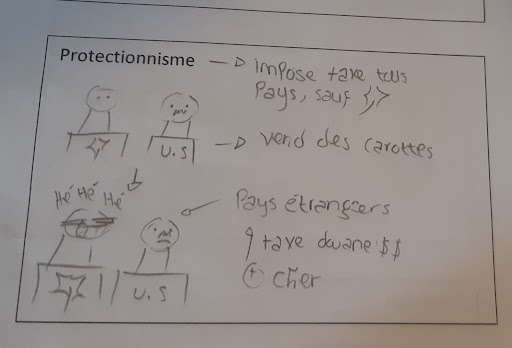 Protectionnisme → impose taxe tous
Pays, sauf
U.S → vend des carottes
Hé Hé Hé
Pays étrangers
↑ taxe douane $$
U.S
+ cher